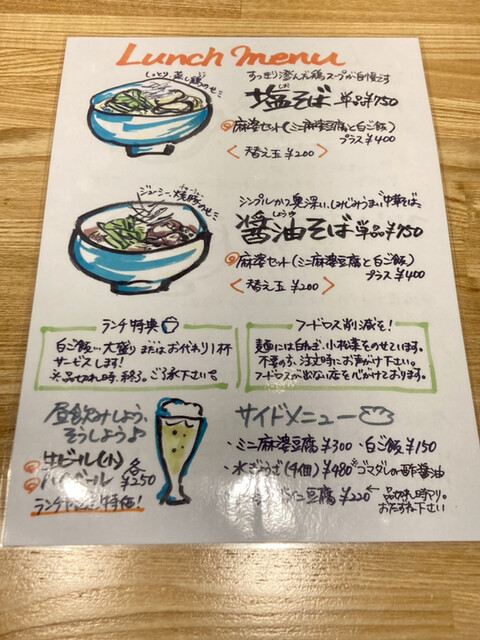 Lunch menu
しっとり蒸し鶏のせ
すっきり澄んだ鶏スープが自慢です
塩そば 単品¥750
しお
麻婆セット(ミニ麻婆豆腐と白ご飯)
プラス¥400
<替え玉 ¥200>
ジューシー焼豚のせ
シンプルかつ奥深い、しみじみうまい"中華そば"
醤油そば 単品¥750
しょうゆ
麻婆セット(ミニ麻婆豆腐と白ご飯)
プラス¥400
<替え玉 ¥200>
ランチ特典
白ご飯…大盛りまたはお代わり1杯
サービスします!
※品切れ時、終了。ご了承下さい。
フードロス削減を!
麺には白ねぎ、小松菜をのせています。
不要の方、注文時にお声がけ下さい。
フードロスが出ない店を心がけております。
昼飲みしよう、
そうしよう♪
生ビール(小) 各
ハイボール ¥250
ランチ 特価!
サイドメニュー
・ミニ麻婆豆腐¥300 ・白ご飯¥150
・水ぎょうざ(4個)¥480 ゴマダレの酢醤油
豆腐¥220 ← 品切れ時アリ。
おたずね下さい